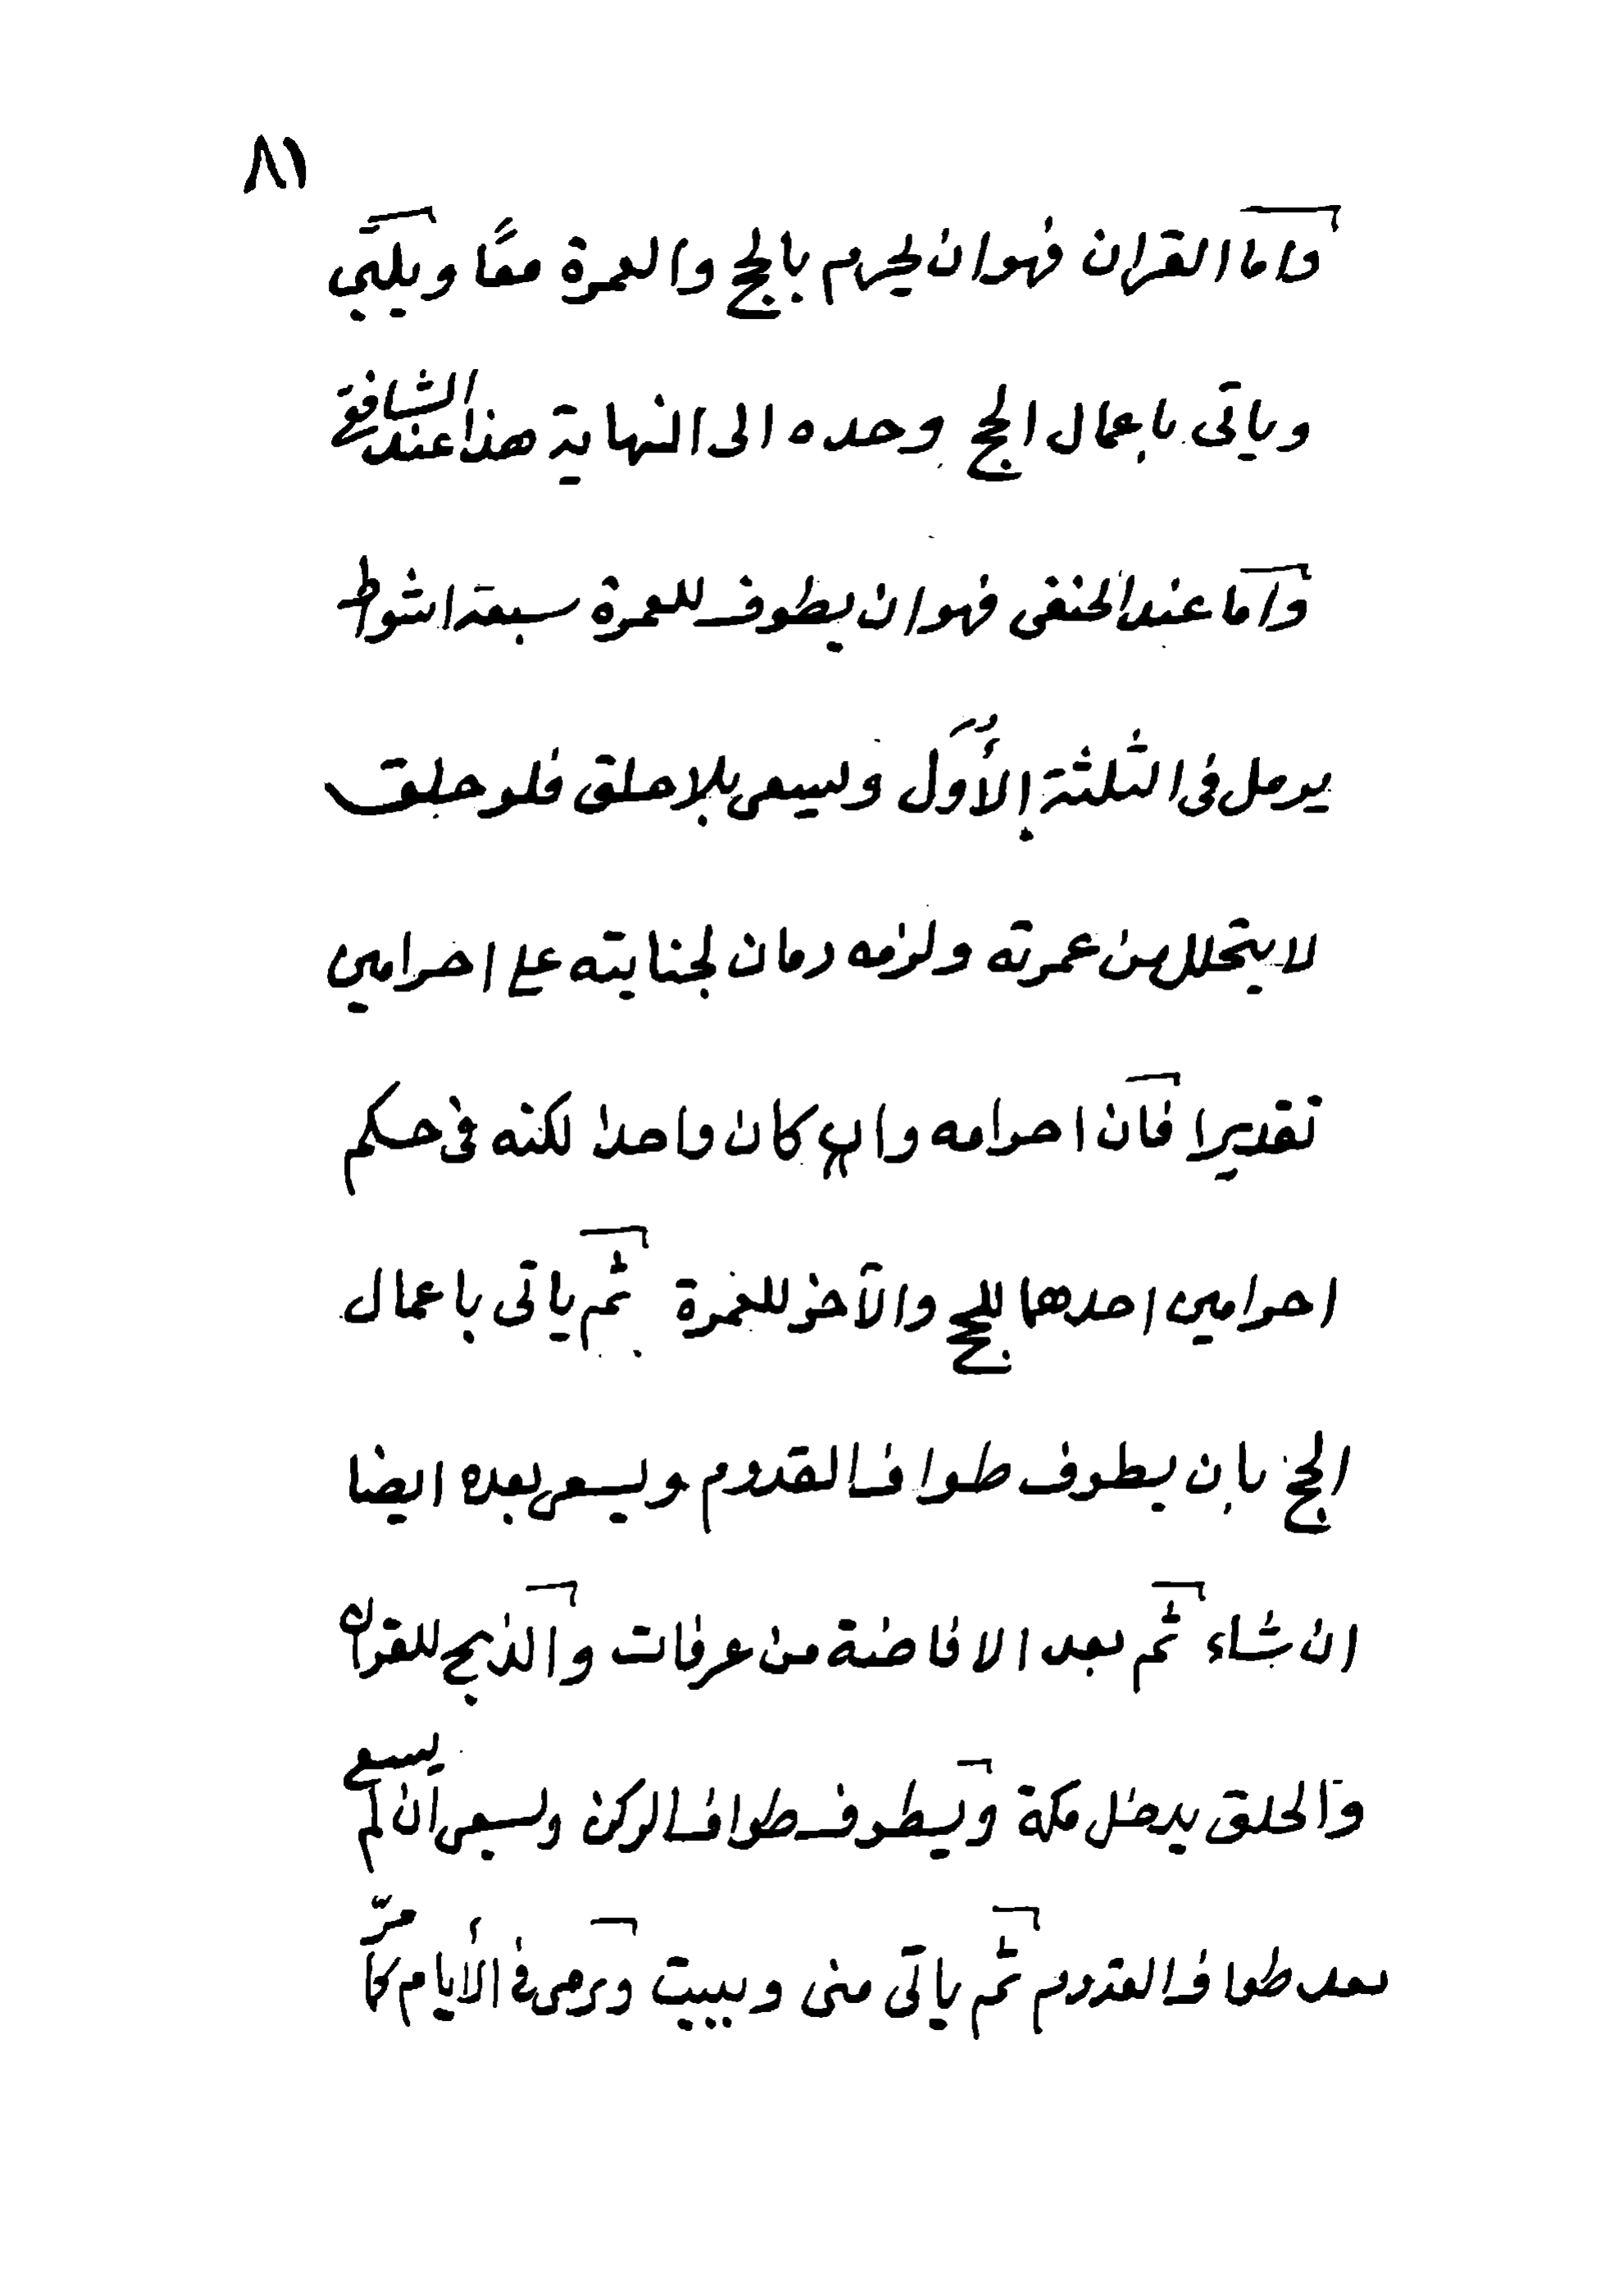 ٨١
واما القران فهو ان يحرم بالحج والعمرة معًا ويلبّي
وياتى باعمال الحج وحده الى النهاية هذا عند الشافعى
واما عند الحنفى فهو ان يطوف للعمرة سبعة اشواط
يرمل فى الثلثة الأُوَل ويسعى بلا حلق فلو حلق
لا يتحلل من عمرته ولزمه دمان لجنايته على احرامين
تقديرا فان احرامه وان كان واحدا لكنه فى حكم
احرامين احدهما للحج والآخر للعمرة ثم ياتى باعمال
الحج بان يطوف طواف القدوم ويسعى بعده ايضا
ان شاء ثم بعد الافاضة من عرفات والذبح للقران
والحلق يدخل مكة ويطوف طواف الركن ويسعى ان لم يسع
بعد طواف القدوم ثم ياتى منى ويبيت ويرمى فى الأيام كما مرّ